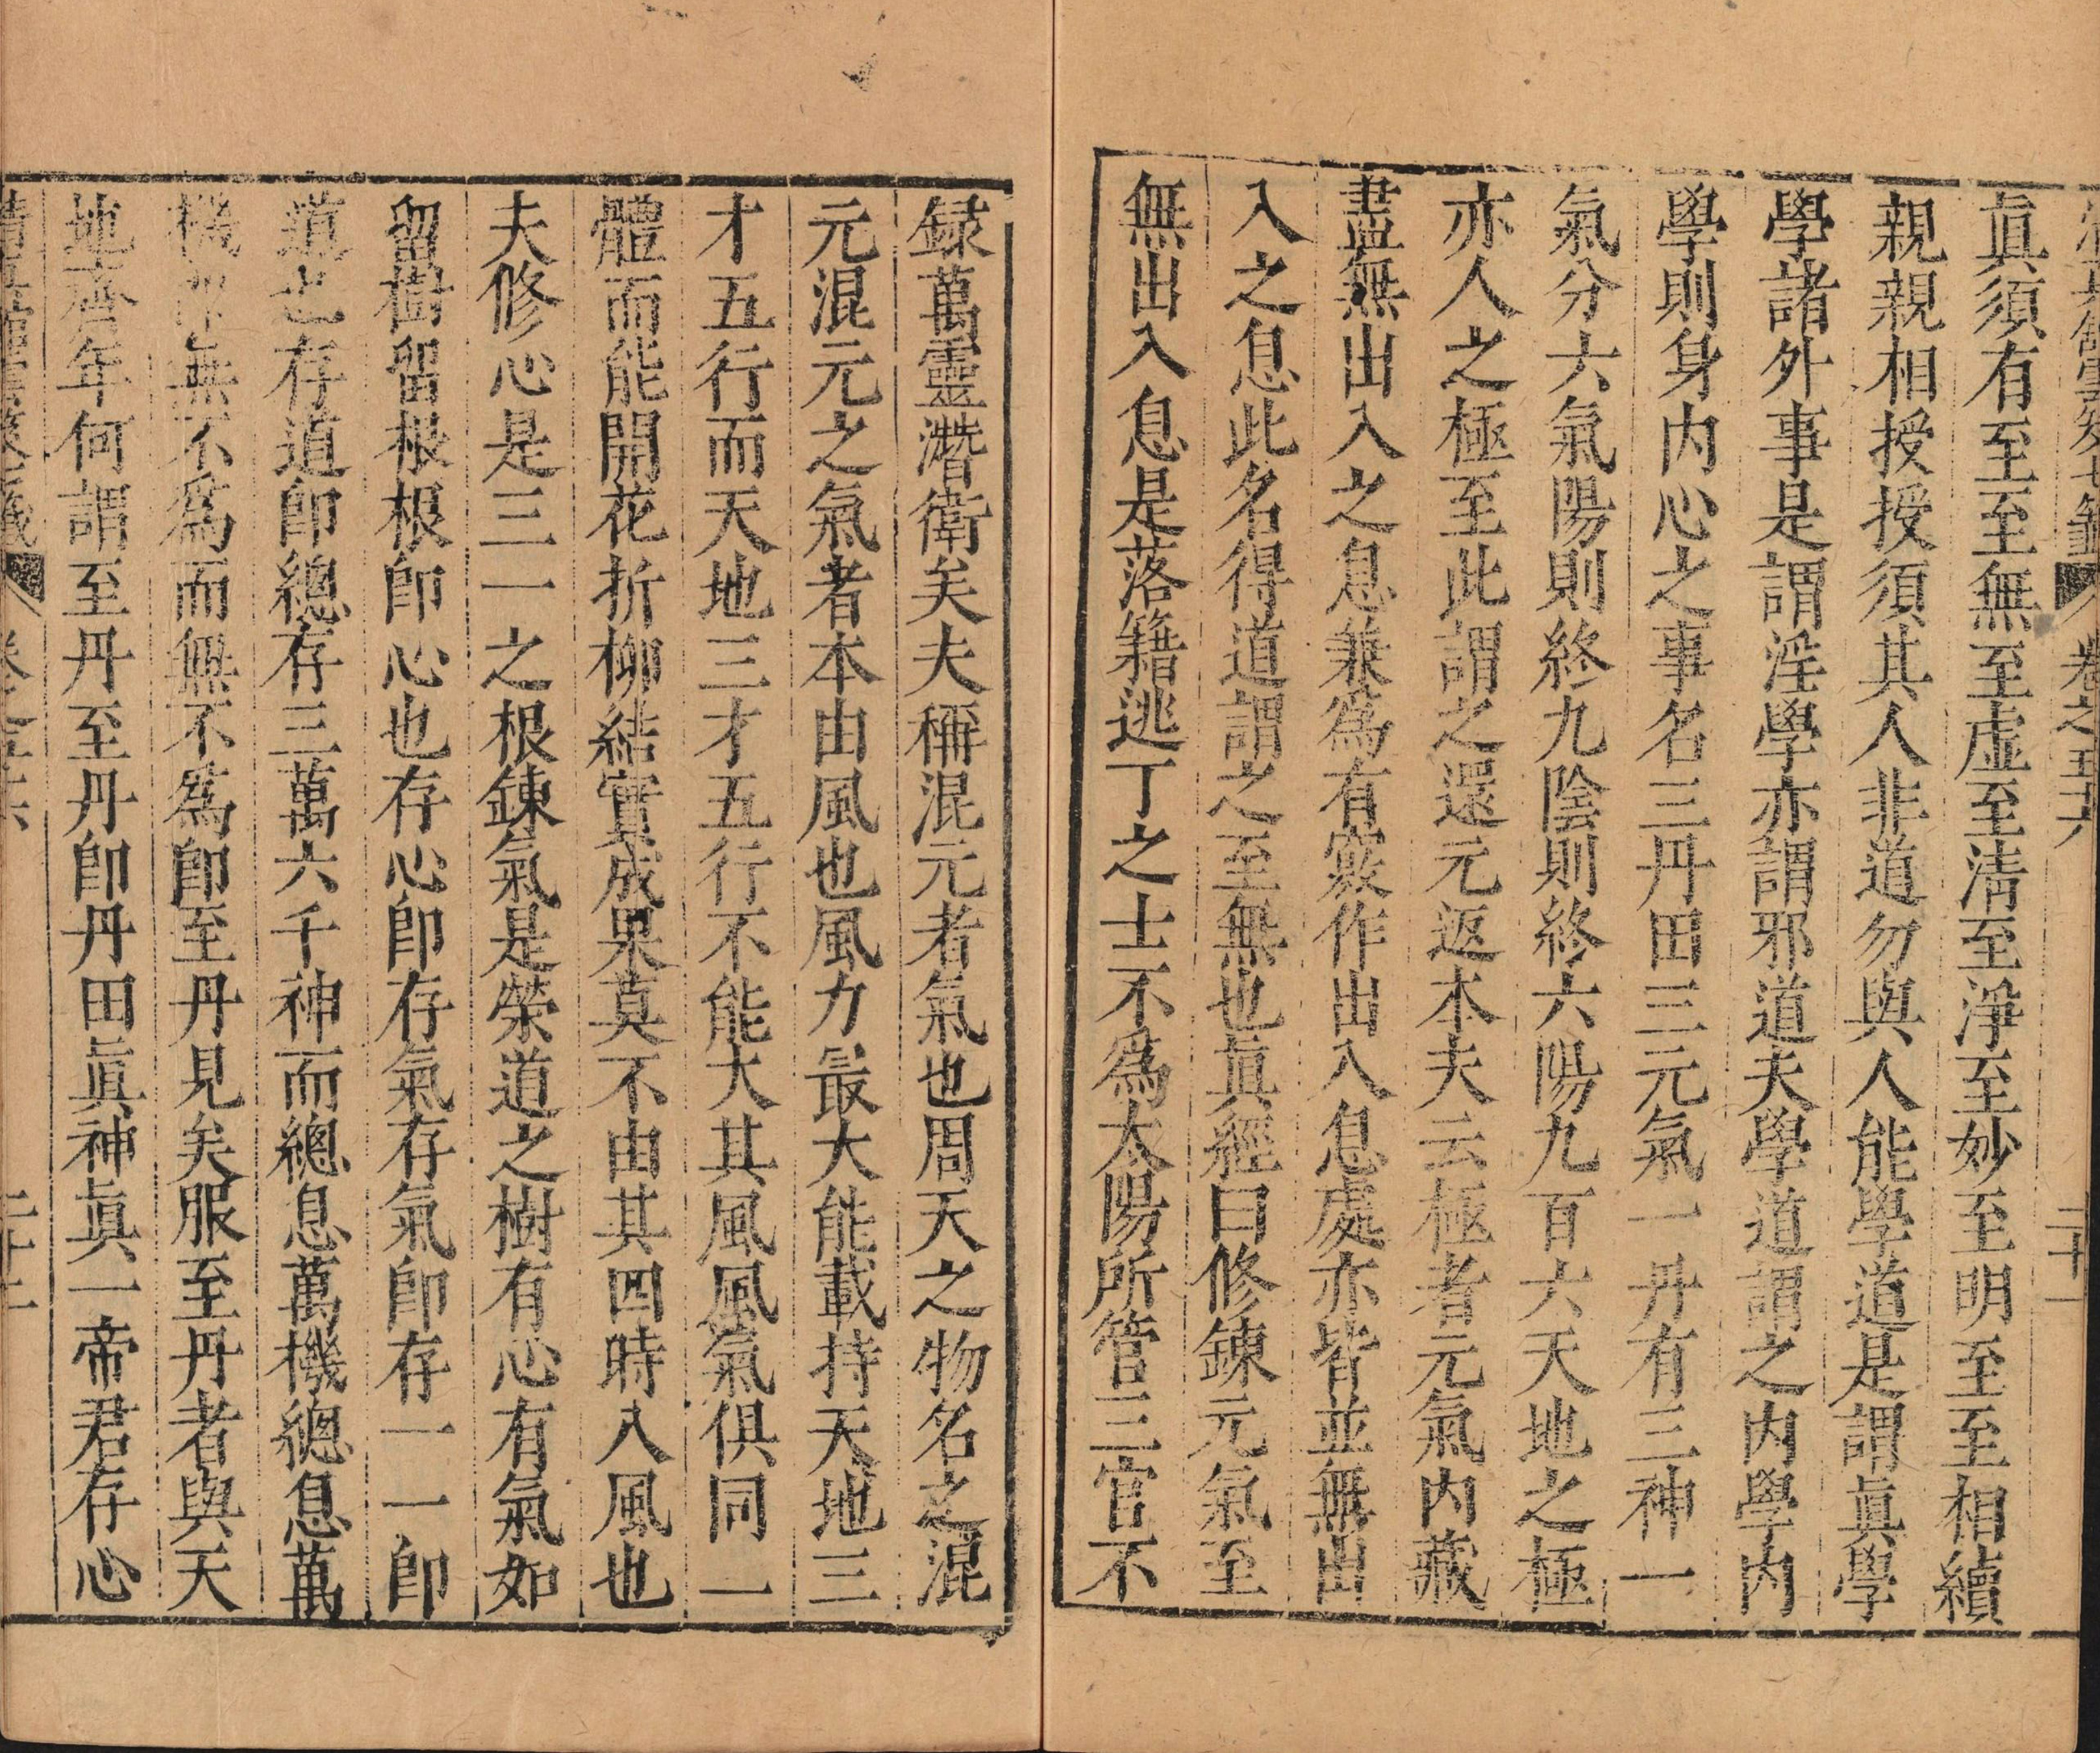 卷之五十六
二十一
眞須有至至無至虛至清至淨至妙至明至至相續
親親相授授須其人非道勿與人能學道是謂眞學
學諸外事是謂淫學亦謂邪道夫學道謂之内學内
學則身内心之事名三丹田三元氣一丹有三神一
氣分六氣陽則終九陰則終六陽九百六天地之極
亦人之極至此謂之還元返本夫云極者元氣内藏
盡無出入之息兼爲有竅作出入息處亦皆並無出
入之息此名得道謂之至無也眞經曰修鍊元氣至
無出入息是落籍逃丁之士不爲太陽所管三官不
録萬靈潛衛矣夫稱混元者氣也周天之物名之混
元混元之氣者本由風也風力最大能載持天地三
才五行而天地三才五行不能大其風風氣俱同一
體而能開花折柳結實成果莫不由其四時八風也
夫修心是三一之根鍊氣是榮道之樹有心有氣如
留樹留根根即心也存心即存氣存氣即存一一即
道也存道即總存三萬六千神而總息萬機總息萬
機即無不爲而無不爲即至丹見矣服至丹者與天
地齊年何謂至丹至丹即丹田眞神眞一帝君存心
二十二